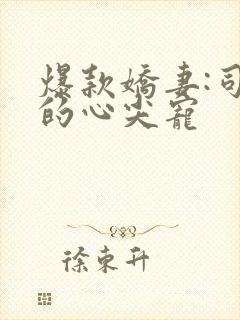 爆款嬌妻:司
的心尖寵
徐東升